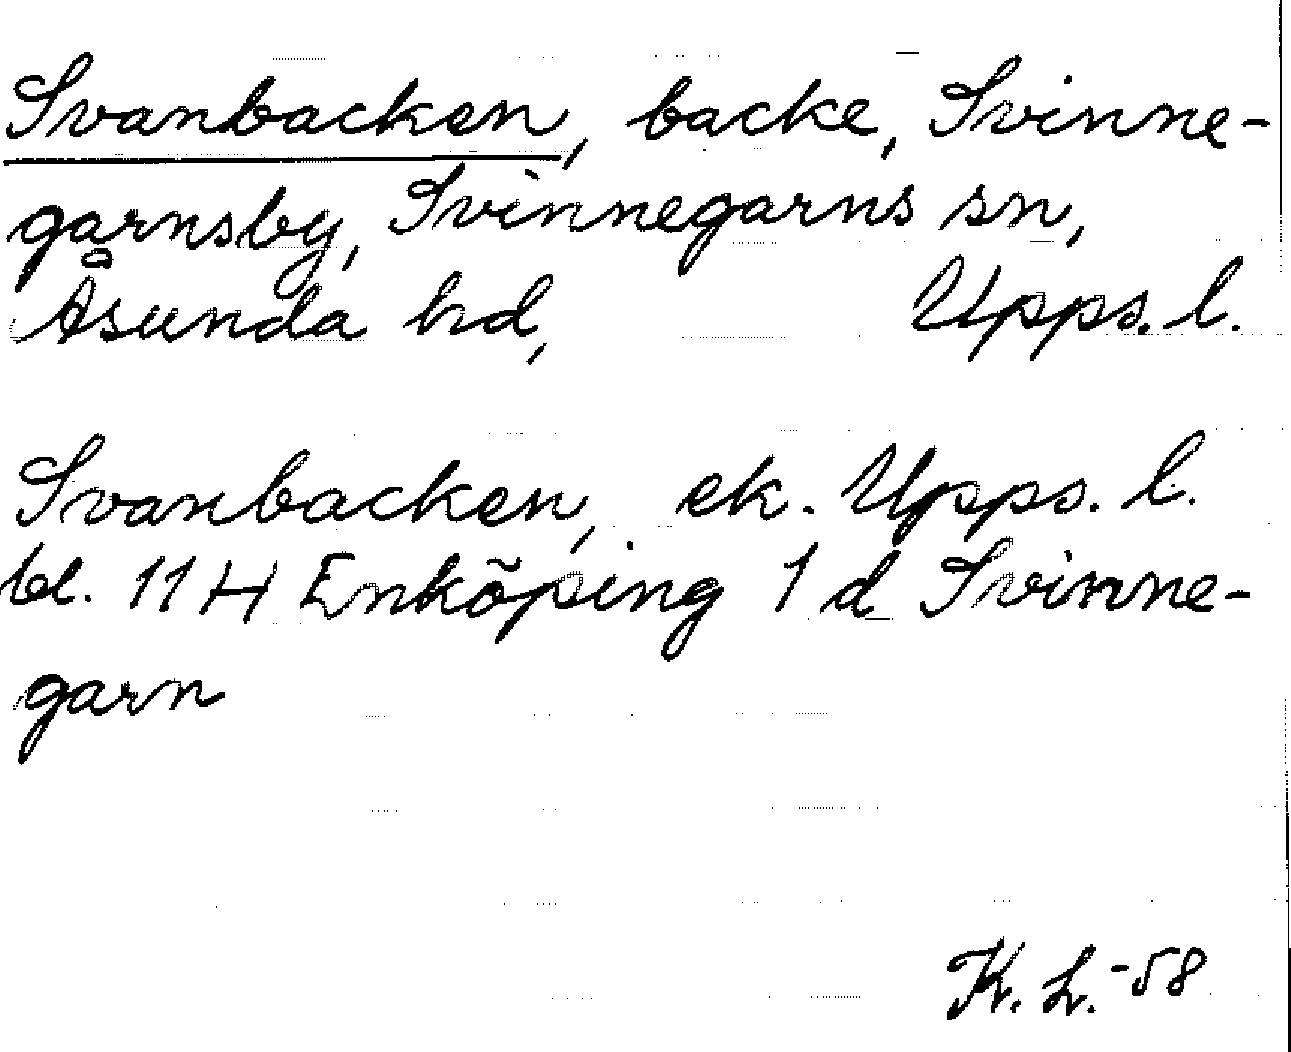 Svanbacken, backe, Svinne-
garnsby, Svinnegarns sn,
Åsunda hd, Upps. l.
Svanbacken, ek. Upps. l.
bl. 11 H Enköping 1 d Svinne-
garn
K. L. -58